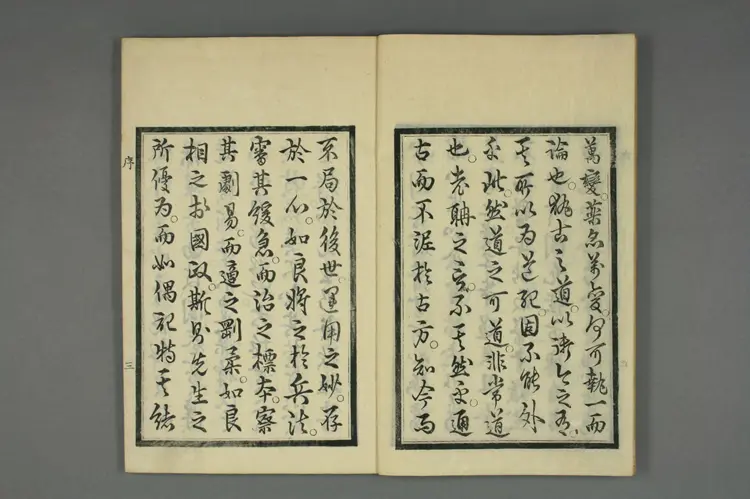 萬變。藥亦萬變。何可執一而
論也。執古之道。以御今之有。
其所以為道紀。固不能外
乎此。然道之可道。非常道
也。老聃之言。不其然乎。通
古而不泥於古方。知今而
不局於後世。運用之妙。存
於一心。如良將之於兵法。
審其緩急。而治之標本。察
其劇易。而適之剛柔。如良
相之於國政。斯則先生之
所優為。而如偶記特其緒
序
三